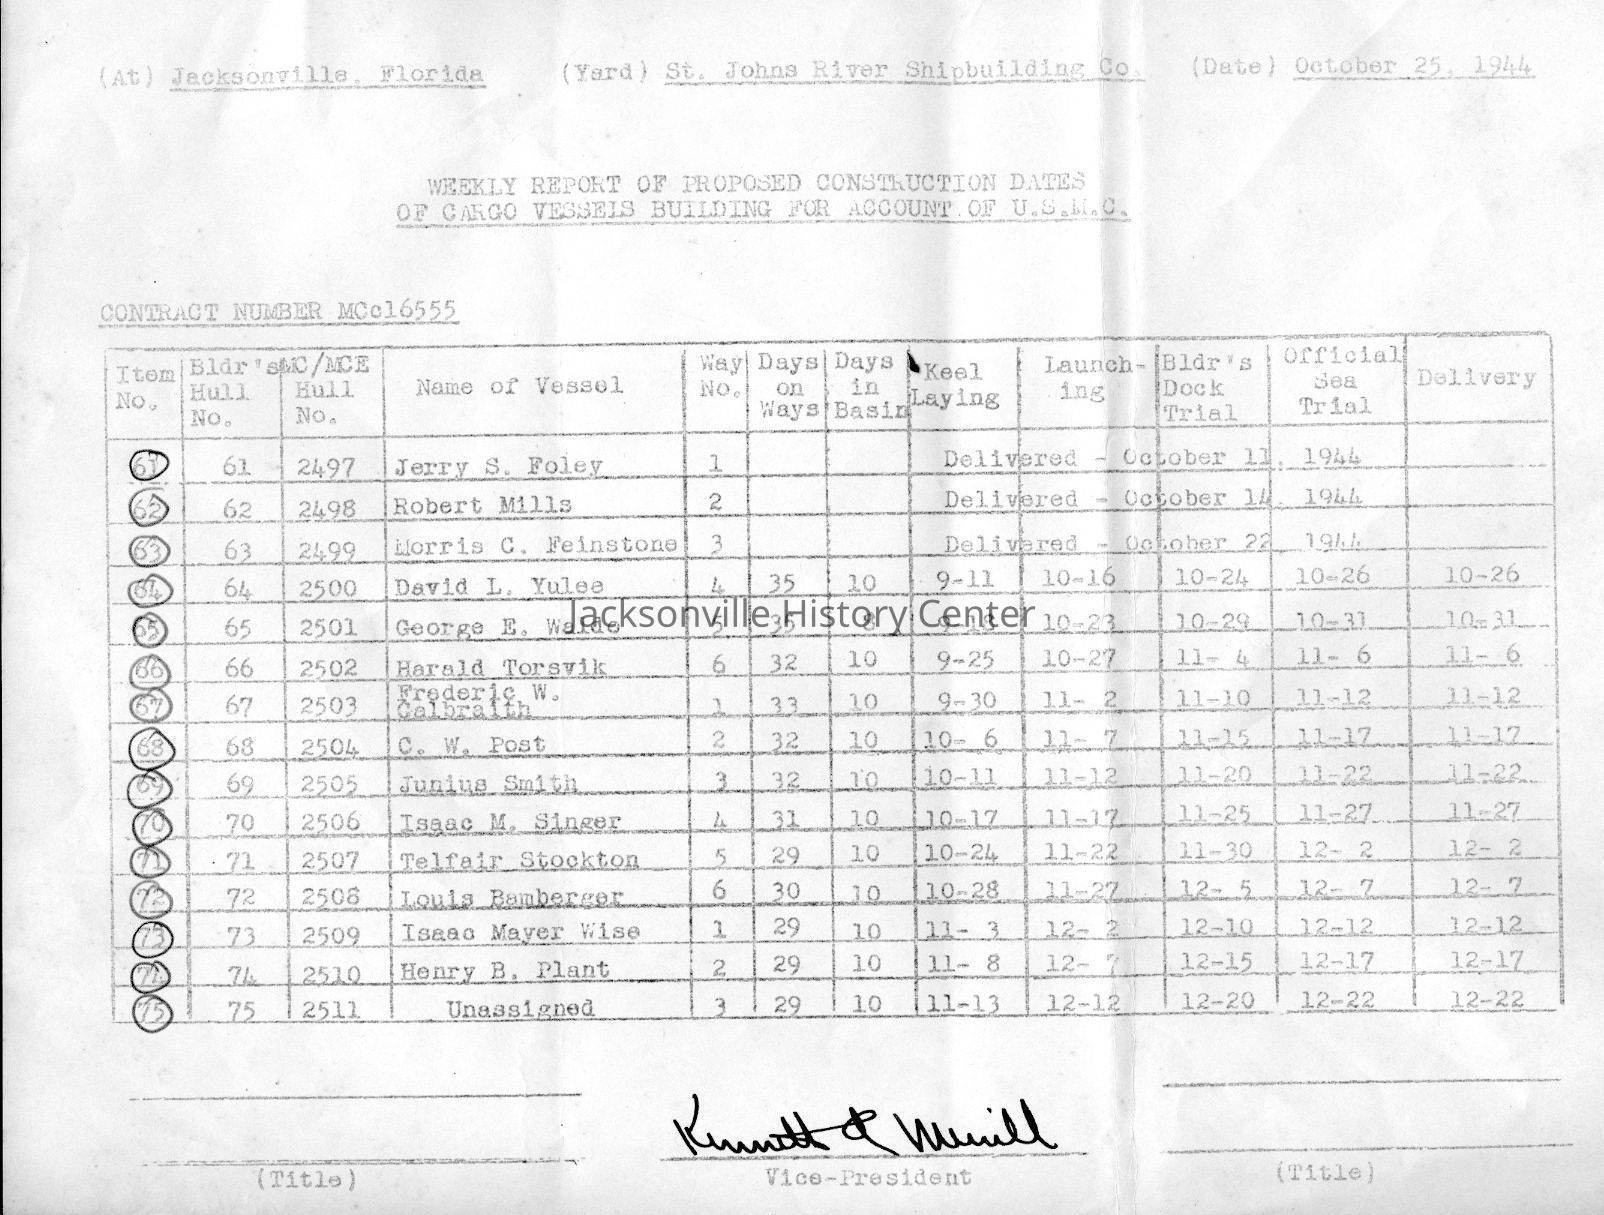 (At) Jacksonville, Florida (Yard) St. Johns River Shipbuilding Co. (Date) October 25, 1944
WEEKLY REPORT OF PROPOSED CONSTRUCTION DATES
OF CARGO VESSELS BUILDING FOR ACCOUNT OF U.S.M.C.
CONTRACT NUMBER MCc16555
Item No. Bldr's Hull No. MC/MCE Hull No. Name of Vessel Way No. Days on Ways Days in Basin Keel Laying Launch-ing Bldr's Dock Trial Official Sea Trial Delivery
61 61 2497 Jerry S. Foley 1 Delivered - October 11, 1944
62 62 2498 Robert Mills 2 Delivered - October 14, 1944
63 63 2499 Morris C. Feinstone 3 Delivered - October 22, 1944
64 64 2500 David L. Yulee 4 35 10 9-11 10-16 10-24 10-26 10-26
65 65 2501 George E. Waldo 5 35 8 9-18 10-23 10-29 10-31 10-31
Jacksonville History Center
66 66 2502 Harald Torsvik 6 32 10 9-25 10-27 11- 4 11- 6 11- 6
67 67 2503 Frederic W. Galbraith 1 33 10 9-30 11- 2 11-10 11-12 11-12
68 68 2504 C. W. Post 2 32 10 10- 6 11- 7 11-15 11-17 11-17
69 69 2505 Junius Smith 3 32 10 10-11 11-12 11-20 11-22 11-22
70 70 2506 Isaac M. Singer 4 31 10 10-17 11-17 11-25 11-27 11-27
71 71 2507 Telfair Stockton 5 29 10 10-24 11-22 11-30 12- 2 12- 2
72 72 2508 Louis Bamberger 6 30 10 10-28 11-27 12- 5 12- 7 12- 7
73 73 2509 Isaac Mayer Wise 1 29 10 11- 3 12- 2 12-10 12-12 12-12
74 74 2510 Henry B. Plant 2 29 10 11- 8 12- 7 12-15 12-17 12-17
75 75 2511 Unassigned 3 29 10 11-13 12-12 12-20 12-22 12-22
Kenneth A Merrill
(Title) Vice-President (Title)